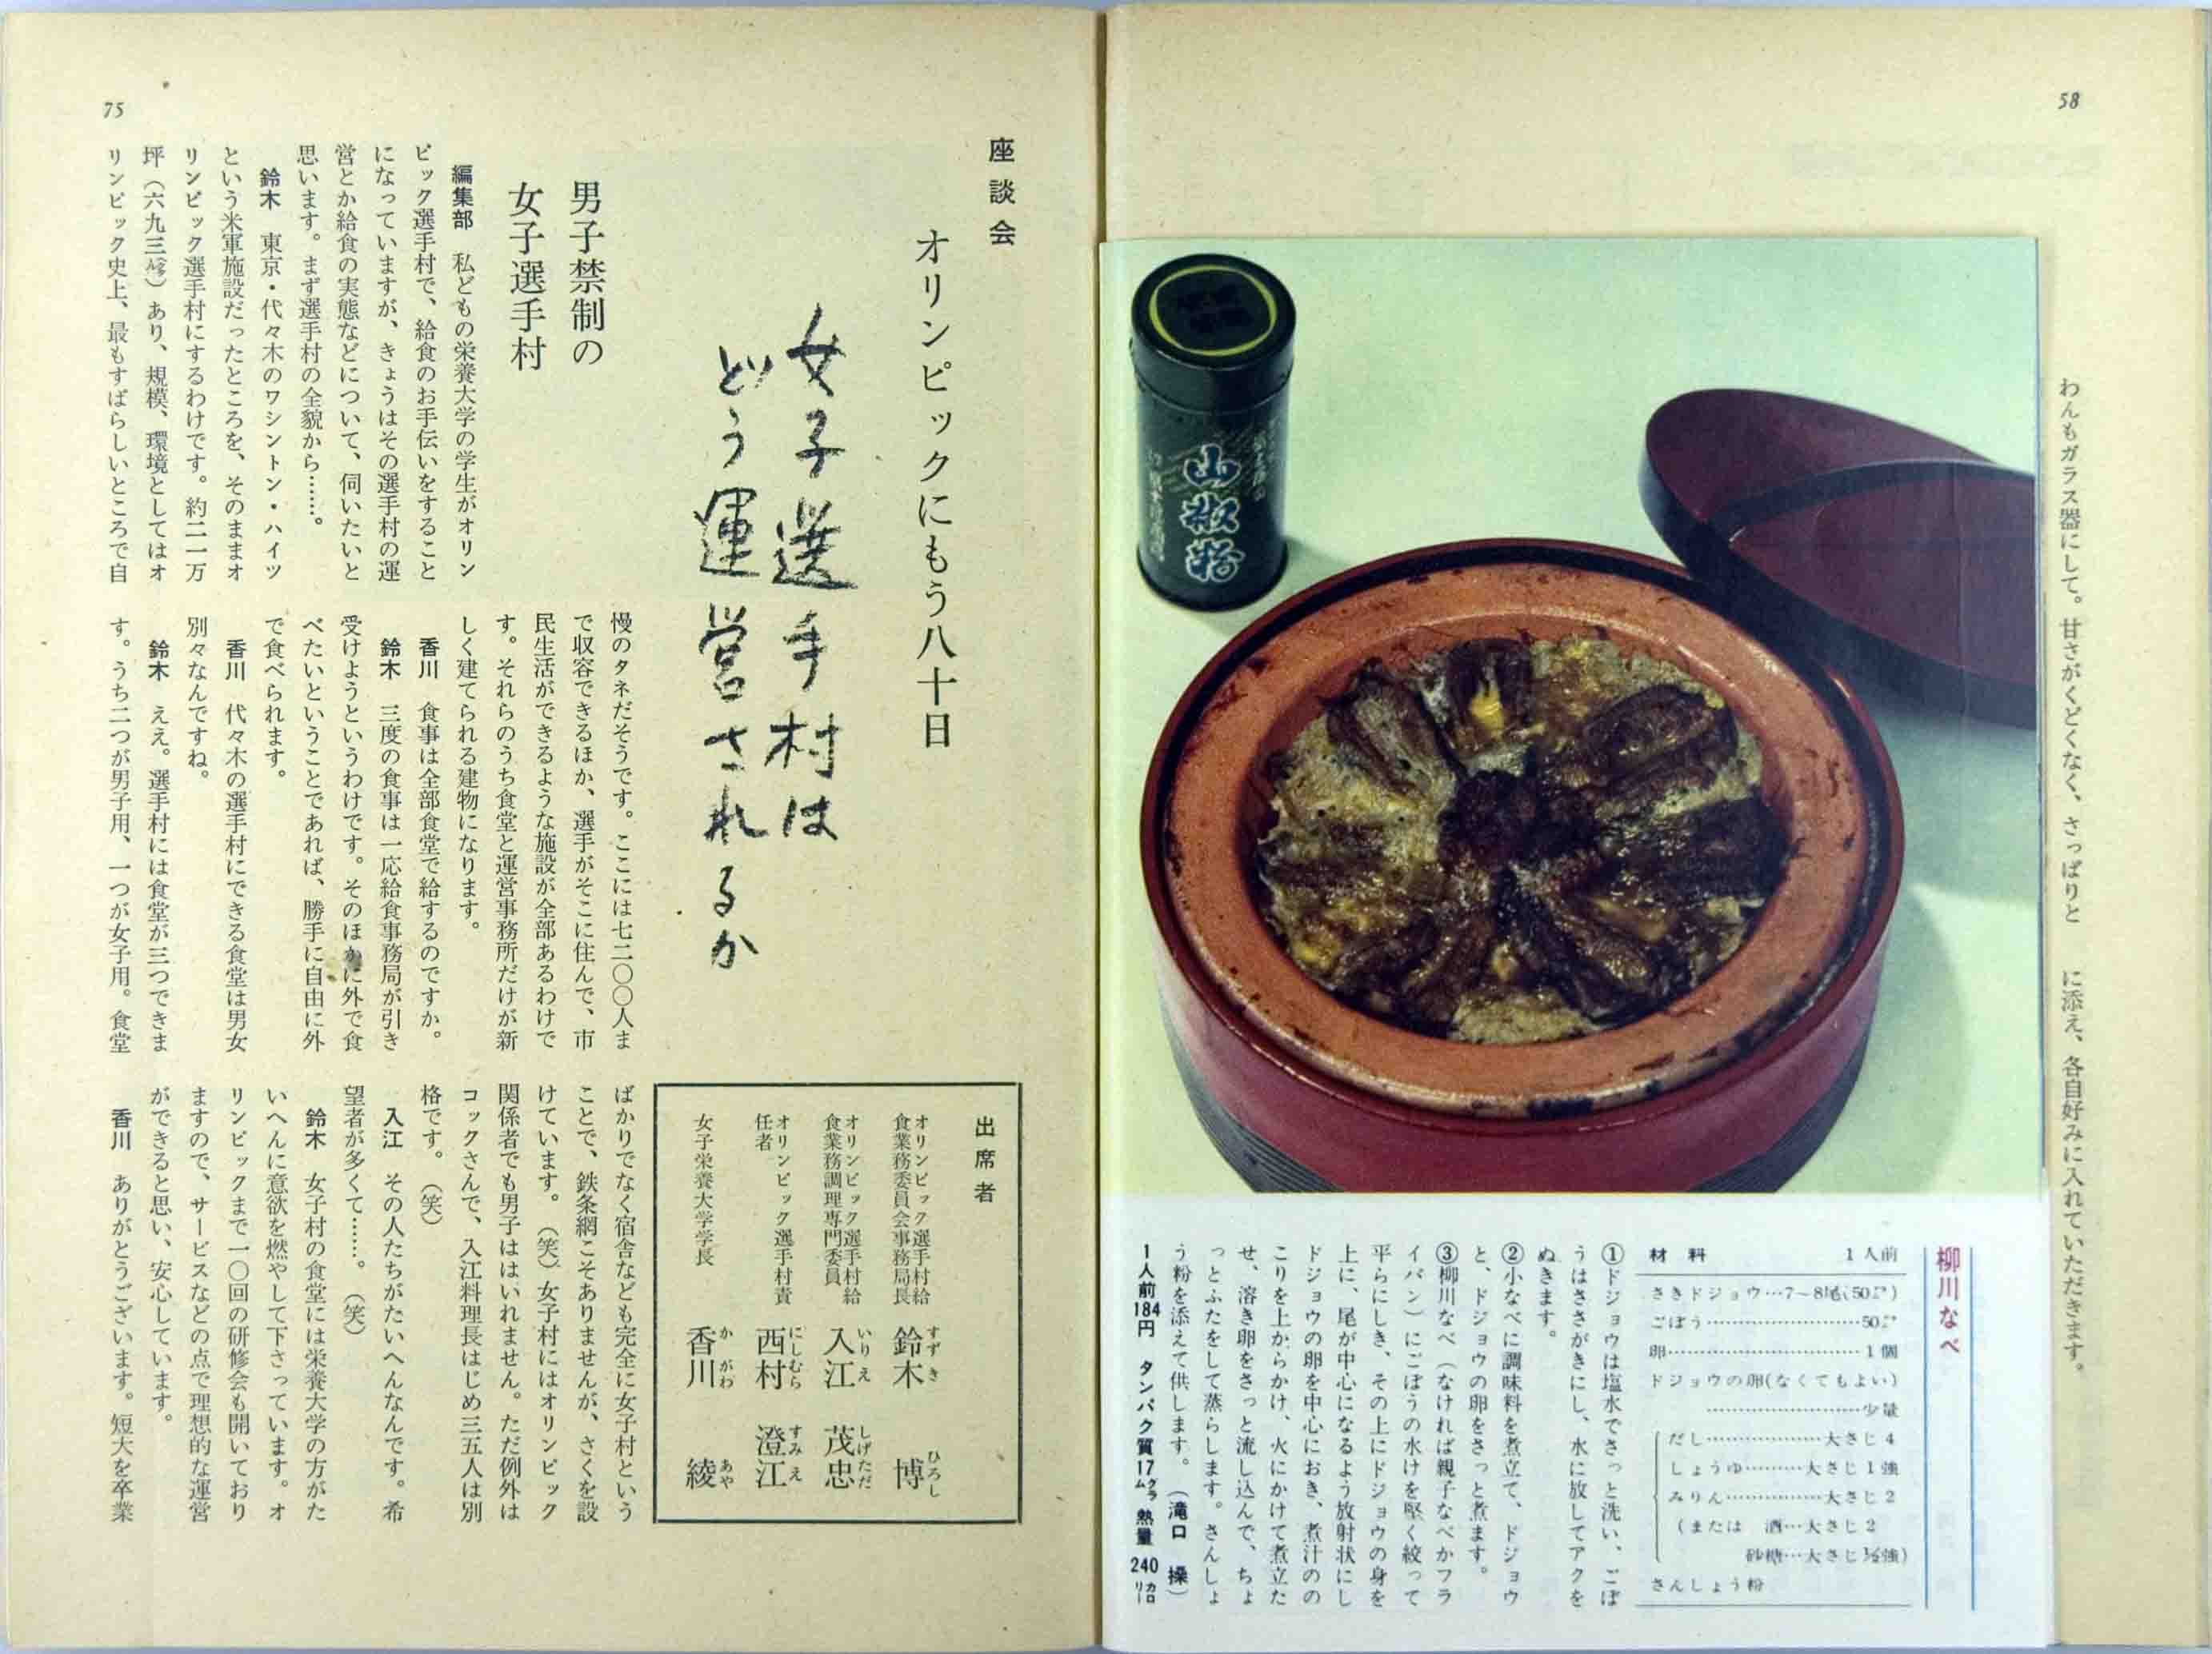 58
わんもガラス器にして。甘さがくどくなく、さっぱりと
に添え、各自好みに入れていただきます。
山椒粉
柳川なべ
材料 1人前
さきドジョウ…7〜8尾(50㌘)
ごぼう……………………50㌘
卵…………………………1個
ドジョウの卵(なくてもよい)
……………………少量
だし………………大さじ4
しょうゆ………大さじ1強
みりん……………大さじ2
(または 酒…大さじ2
砂糖…大さじ½強)
さんしょう粉
①ドジョウは塩水でさっと洗い、ごぼ
うはささがきにし、水に放してアクを
ぬきます。
②小なべに調味料を煮立て、ドジョウ
と、ドジョウの卵をさっと煮ます。
③柳川なべ（なければ親子なべかフラ
イパン）にごぼうの水けを堅く絞って
平らにしき、その上にドジョウの身を
上に、尾が中心になるよう放射状にし
ドジョウの卵を中心におき、煮汁のの
こりを上からかけ、火にかけて煮立た
せ、溶き卵をさっと流し込んで、ちょ
っとふたをして蒸らします。さんしょ
う粉を添えて供します。（滝口 操）
1人前184円 タンパク質17㌘ 熱量240カロリー
座談会
オリンピックにもう八十日
女子選手村は
どう運営されるか
出席者
オリンピック選手村給
食業務委員会事務局長 鈴木 博
すずき ひろし
オリンピック選手村給
食業務調理専門委員 入江 茂忠
いりえ しげただ
オリンピック選手村責
任者 西村 澄江
にしむら すみえ
女子栄養大学学長 香川 綾
かがわ あや
男子禁制の
女子選手村
編集部 私どもの栄養大学の学生がオリン
ピック選手村で、給食のお手伝いをすること
になっていますが、きょうはその選手村の運
営とか給食の実態などについて、伺いたいと
思います。まず選手村の全貌から……。
鈴木 東京・代々木のワシントン・ハイツ
という米軍施設だったところを、そのままオ
リンピック選手村にするわけです。約二一万
坪（六九三㌃）あり、規模、環境としてはオ
リンピック史上、最もすばらしいところで自
慢のタネだそうです。ここには七二〇〇人ま
で収容できるほか、選手がそこに住んで、市
民生活ができるような施設が全部あるわけで
す。それらのうち食堂と運営事務所だけが新
しく建てられる建物になります。
香川 食事は全部食堂で給するのですか。
鈴木 三度の食事は一応給食事務局が引き
受けようというわけです。そのほかに外で食
べたいということであれば、勝手に自由に外
で食べられます。
香川 代々木の選手村にできる食堂は男女
別々なんですね。
鈴木 ええ。選手村には食堂が三つできま
す。うち二つが男子用、一つが女子用。食堂
ばかりでなく宿舎なども完全に女子村という
ことで、鉄条網こそありませんが、さくを設
けています。（笑）女子村にはオリンピック
関係者でも男子ははいれません。ただ例外は
コックさんで、入江料理長はじめ三五人は別
格です。（笑）
入江 その人たちがたいへんなんです。希
望者が多くて……。（笑）
鈴木 女子村の食堂には栄養大学の方がた
いへんに意欲を燃やして下さっています。オ
リンピックまで一〇回の研修会も開いており
ますので、サービスなどの点で理想的な運営
ができると思い、安心しています。
香川 ありがとうございます。短大を卒業
75